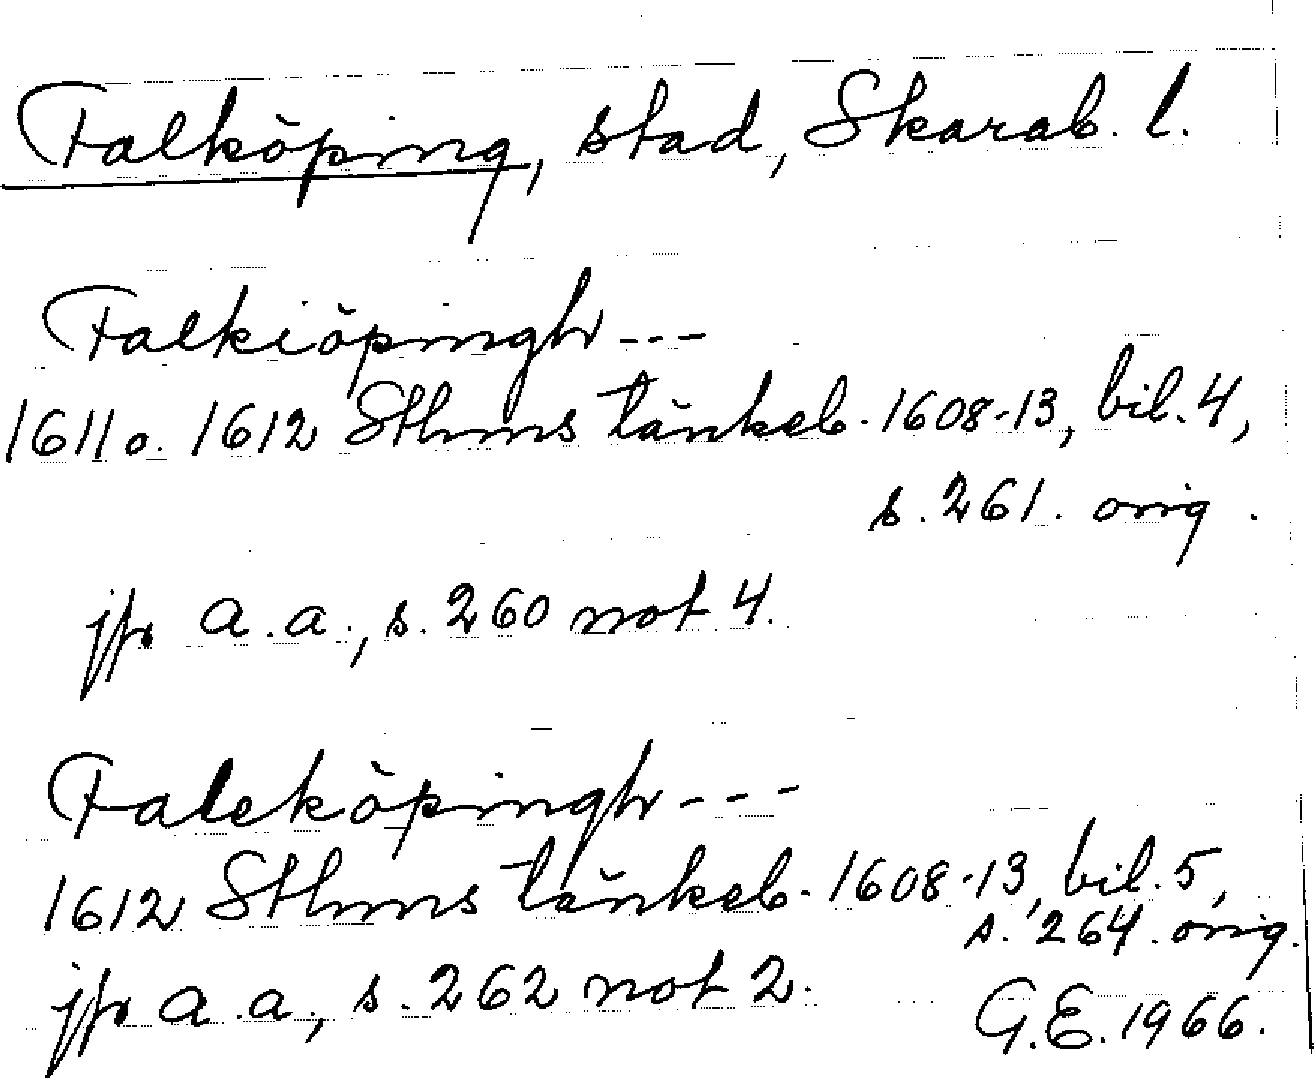 Falköping, stad, Skarab. l.
Falkiöpingh ---
1611 o. 1612 Sthms tänkeb. 1608-13, bil. 4,
s. 261. orig.
jfr a.a., s. 260 not 4.
Faleköpingh ---
1612 Sthms tänkeb. 1608-13, bil. 5,
s. 264. orig.
jfr a.a., s. 262 not 2.
G.E. 1966.